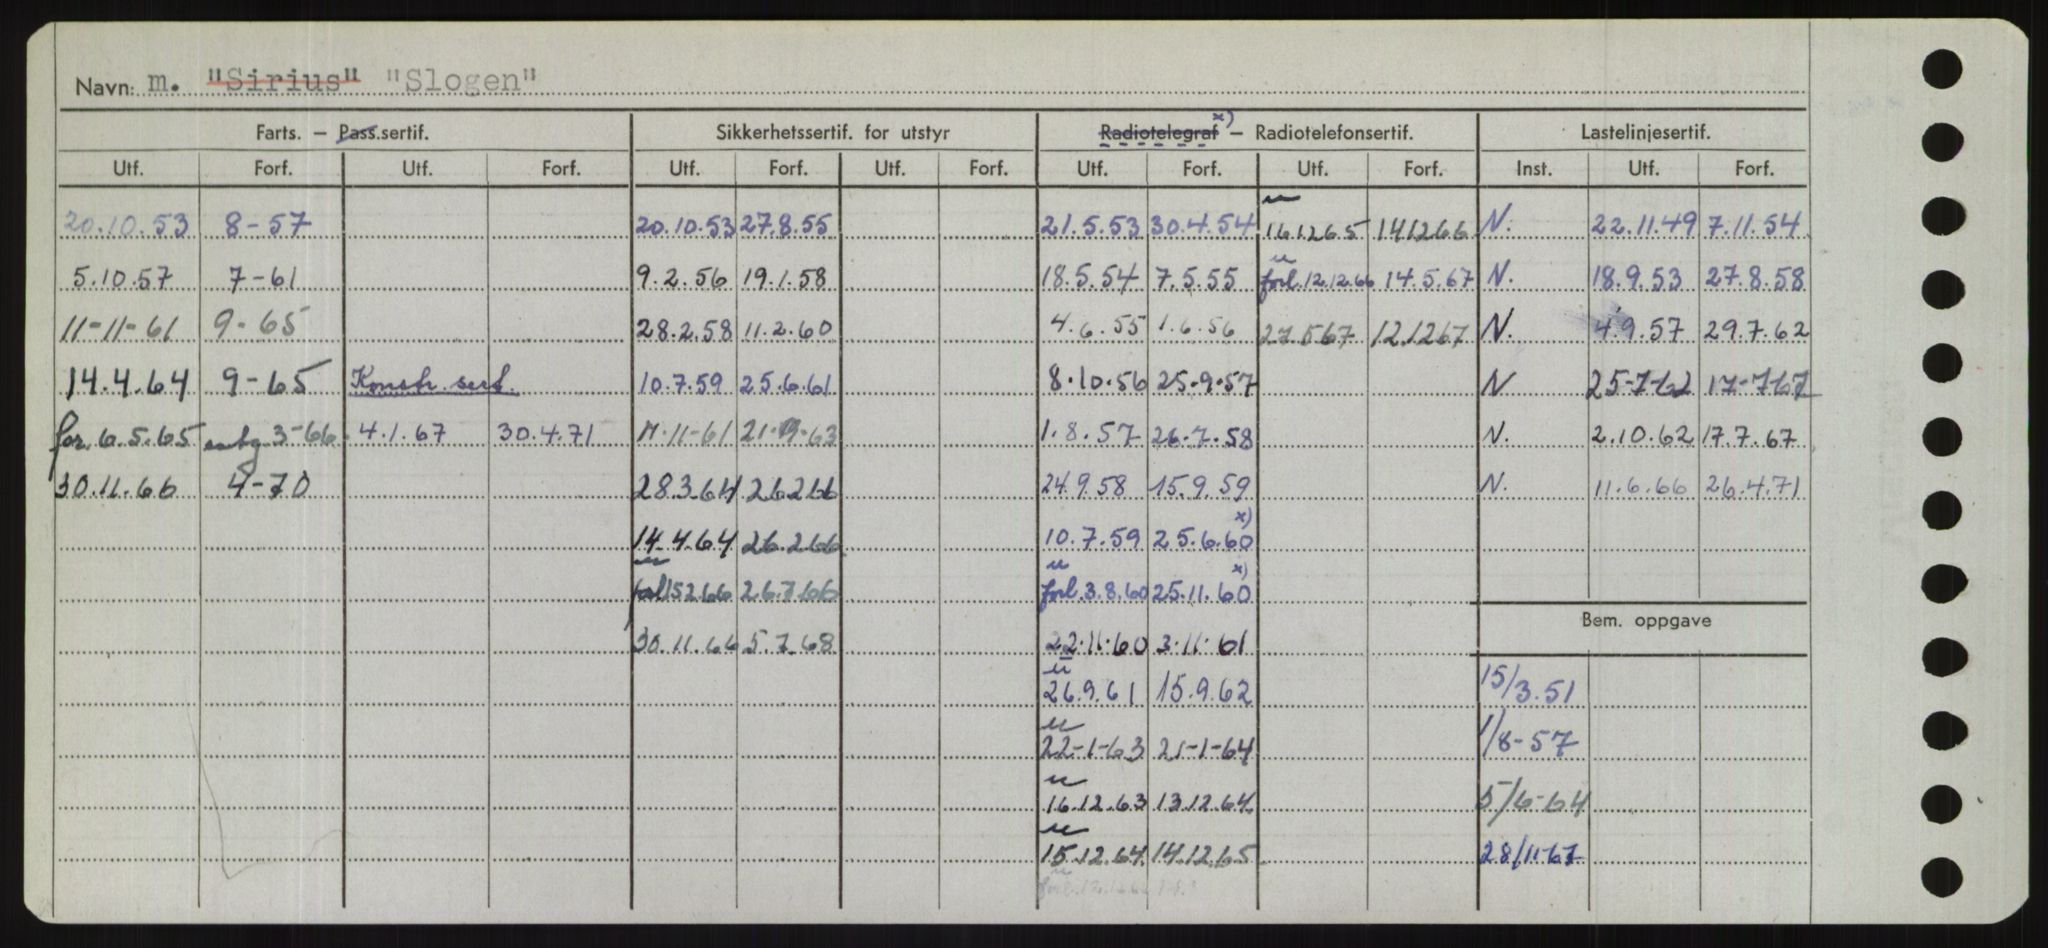 Navn: m. "Sirius" "Slogen"
Farts. – Pass.sertif. Sikkerhetssertif. for utstyr Radiotelegraf x) – Radiotelefonsertif. Lastelinjesertif.
Utf. Forf. Utf. Forf. Utf. Forf. Utf. Forf. Utf. Forf. Utf. Forf. Inst. Utf. Forf.
20.10.53 8-57 20.10.53 27.8.55 21.5.53 30.4.54 u 16.12.65 14.12.66 N. 22.11.49 7.11.54
5.10.57 7-61 9.2.56 19.1.58 18.5.54 7.5.55 u forl. 12.12.66 14.5.67 N. 18.9.53 27.8.58
11-11-61 9-65 28.2.58 11.2.60 4.6.55 1.6.56 27.5.67 12.12.67 N. 4.9.57 29.7.62
14.4.64 9-65 Konstr. sert. 10.7.59 25.6.61 8.10.56 25.9.57 N 25-7-62 17-7-67
for. 6.5.65 3-66 4.1.67 30.4.71 11-11-61 1.8.57 26.7.58 N. 2.10.62 17.7.67
30.11.66 4-70 28.3.64 26.2.66 24.9.58 15.9.59 N. 11.6.66 26.4.71
14.4.64 26.2.66 10.7.59 25.6.60 x)
forl 15.2.66 26.7.66 u forl. 3.8.60 25.11.60 x)
Bem. oppgave
30.11.66 5.7.68 22.11.60 3.11.61
u 26.9.61 15.9.62 15/3.51
u 22-1-63 21-1-64 1/8-57
u 16.12.63 13.12.64 5/6-64
u 15.12.64 14.12.65 28/11-67